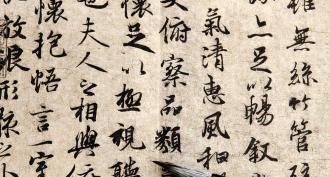 雖無絲竹管
亦足以暢敘
氣清惠風和
大俯察品類
懷足以極視聽
夫人之相與
懷抱悟言一室
放浪形骸之外